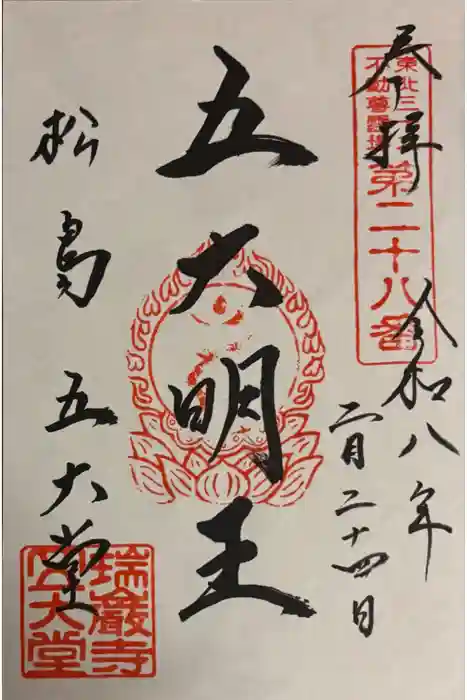 奉拝
東北三十六
不動尊霊場
第二十八番
令和八年
二月二十四日
五大明王
松島 五大堂
瑞巌寺
五大堂